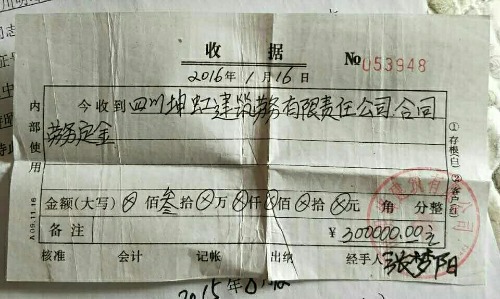 收据
No 053948
2016年1月16日
今收到四川坤虹建筑劳务有限责任公司合同
劳务定金
金额(大写)⊗佰叁拾⊗万⊗仟⊗佰⊗拾⊗元 角 分整
备注 ¥300000.00元
核准 会计 记帐 出纳 经手人 张梦阳
内部使用
A 09.11.16
①存根(白) ②客户(红)
2015年